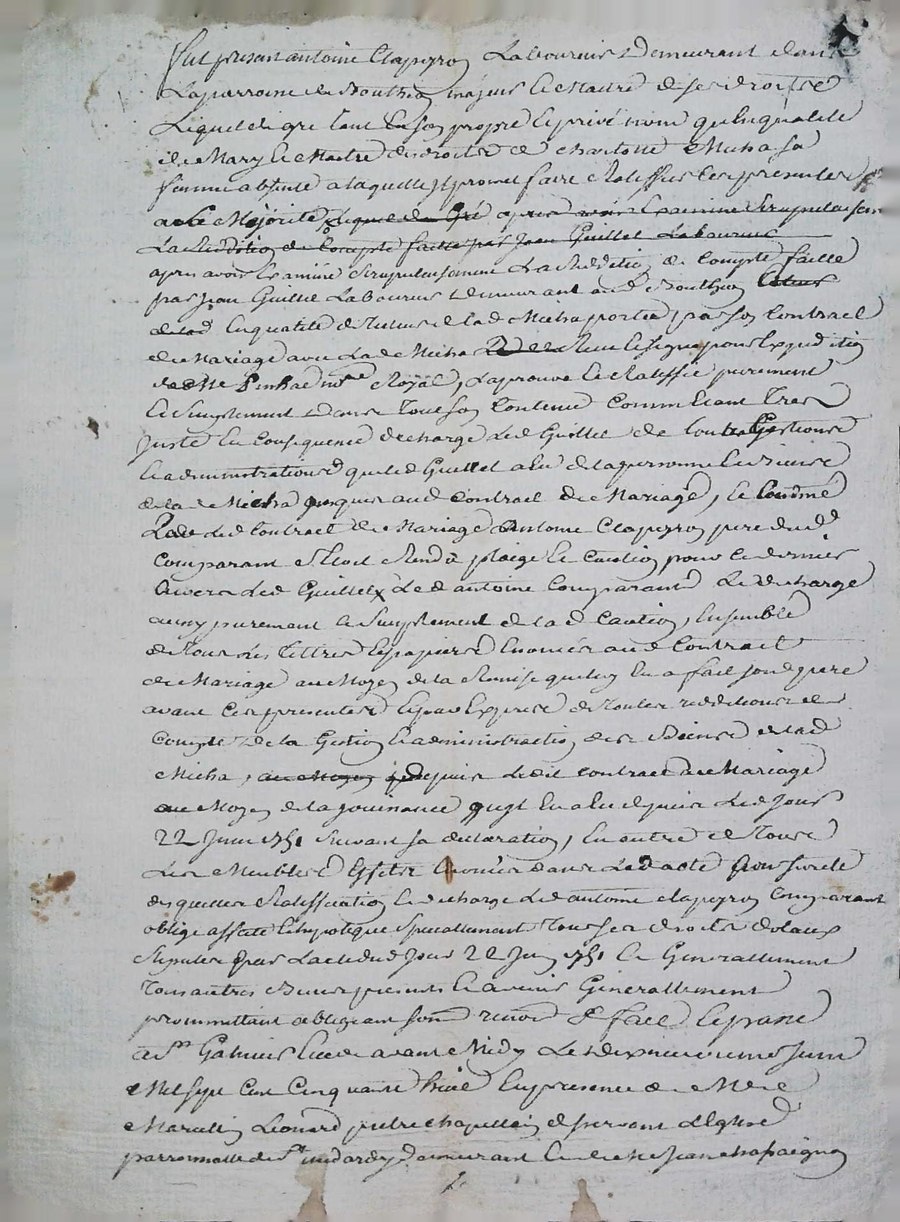 fut present antoine Clapeyron Laboureur Demeurant dans
La parroisse de Bouthéon majeur et Maitre de ses droits
Lequel de gré tant en son propre et privé nom qu'en qualité
de Mary et Maitre des droits de Micha sa
femme absente a laquelle il promet faire Ratiffier ces presentes
a de Majorité Lequel de Gré apres avoir Examiné Scrupuleusem
La Reddition de Compte faitte par Jean Guillet Laboureur
apres avoir Examiné Scrupuleusement La Reddition de Compte faitte
par Jean Guillet Laboureur Demeurant aud Bouthéon
de lad En qualité de Tuteur de lad Micha portée par son Contract
de Mariage avec La de Micha Reçu et signé pour Expedition
Royal, Laprouve et Ratiffie purement
et Simplement Dans Tout son Contenu Comme Etant Tres
Juste En Consequence decharge Led Guillet de toutes Gestions
et administrations que led Guillet a Eu de la personne et biens
de la de Micha jusques aud Contract de Mariage, et Comme
Par led Contract de Mariage antoine Clapeyron pere dud
Comparant s'Etoit Rendu pleige et Caution pour ce dernier
Envers Led Guillet Led antoine Comparant Le decharge
aussy purement et Simplement de lad Caution, Ensemble
de Tous Les Tittres et papiers Enoncés aud Contract
de Mariage au Moyen de la Remise qu'il luy En a fait sond pere
avant ces presentes Et par Exprès de Toutes redditions de
Compte De la Gestion et administration des Biens de lad
Micha, au Moyen depuis Ledit Contract de Mariage
au Moyen de la jouissance qu'il En a Eu depuis Led Jour
22 Juin 1751 Suivant sa declaration, En outre de Tous
Les Meubles Effets Enoncés dans Led acte Pour sureté
desquelles Ratiffication et decharge Led antoine Clapeyron Comparant
oblige affecte et hypoteque Speciallement Tous ses droits
Stipulés Par L'acte dud Jour 22 Juin 1751 Et Generallement
Tous autres Biens presents et avenir Generallement
prommettant obligeant soum renon fait et passé
a St Galmier Etude avant Midy Le dix neuvieme Juin
Mil sept Cent Cinquante huit En presence de Mre
Marcellin Leonard pretre chapellain et servant L'Eglise
parroissialle de St medard y Demeurant et de Sr Jean